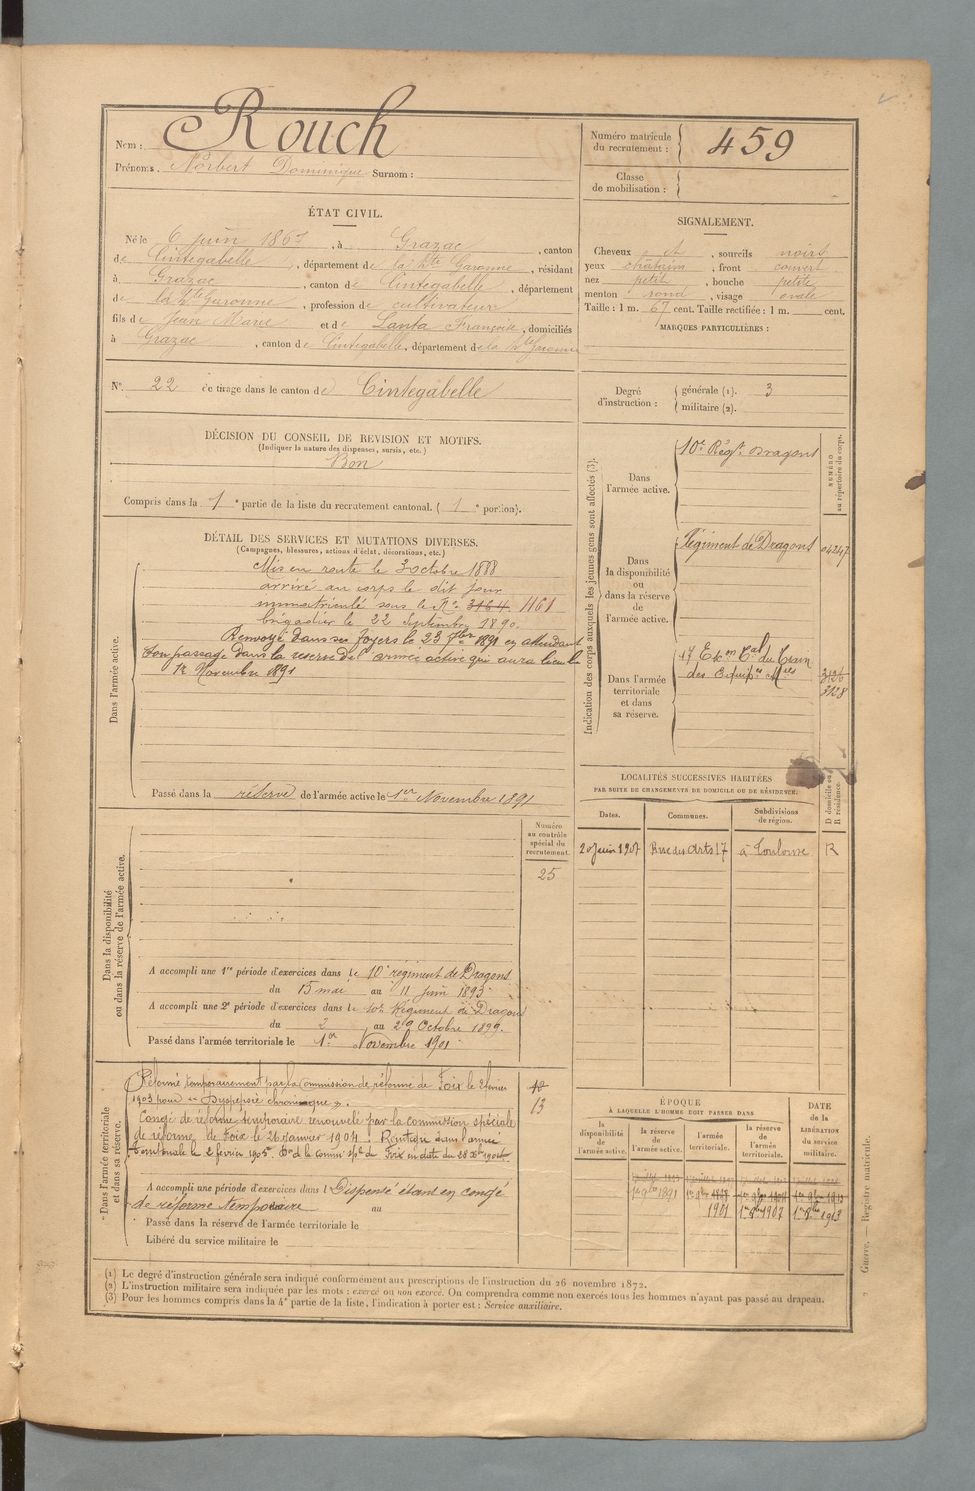 Nom : Rouch
Prénoms. Norbert Dominique Surnom :
Numéro matricule du recrutement : 459
Classe de mobilisation :
ÉTAT CIVIL.
Né le 6 juin 1867, à Grazac, canton
de Cintegabelle, département de la Hte Garonne, résidant
à Grazac, canton de Cintegabelle, département
de la Hte Garonne, profession de cultivateur
fils de Jean Marie et de Lanta Françoise, domiciliés
à Grazac, canton de Cintegabelle, département de la Hte Garonne
SIGNALEMENT.
Cheveux et, sourcils noirs
yeux châtains, front couvert
nez petit, bouche petite
menton rond, visage ovale
Taille : 1 m. 67 cent. Taille rectifiée : 1 m. cent.
MARQUES PARTICULIÈRES :
No. 22 de tirage dans le canton de Cintegabelle
Degré d'instruction : générale (1). 3
militaire (2).
DÉCISION DU CONSEIL DE REVISION ET MOTIFS.
(Indiquer la nature des dispenses, sursis, etc.)
Bon
Compris dans la 1e partie de la liste du recrutement cantonal. (1e portion).
DÉTAIL DES SERVICES ET MUTATIONS DIVERSES.
(Campagnes, blessures, actions d'éclat, décorations, etc.)
Dans l'armée active.
Mis en route le 3 octobre 1888
arrivé au corps le dit jour
immatriculé sous le No 3164 1161
brigadier le 22 Septembre 1890.
Renvoyé dans ses foyers le 23 7bre 1891 en attendant
son passage dans la reserve de l'armée active qui aura lieu le
1er Novembre 1891
Passé dans la réserve de l'armée active le 1er Novembre 1891
Indication des corps auxquels les jeunes gens sont affectés (3).
NUMÉRO au répertoire du corps.
Dans l'armée active.
10e Regt Dragons
Dans la disponibilité ou dans la réserve de l'armée active.
Régiment de Dragons 04247
Dans l'armée territoriale et dans sa réserve.
17 Eson Cal du Train
des Equipes Mres
3126
3128
LOCALITÉS SUCCESSIVES HABITÉES
PAR SUITE DE CHANGEMENTS DE DOMICILE OU DE RÉSIDENCE.
Dates. Communes. Subdivisions de région. D domicile ou R résidence.
20 Juin 1907 Rue des Arts 17 à Toulouse R
Dans la disponibilité ou dans la réserve de l'armée active.
Numéro au contrôle spécial du recrutement.
25
A accompli une 1re période d'exercices dans le 10e régiment de Dragons
du 15 mai au 11 juin 1893
A accompli une 2e période d'exercices dans le 10e Régiment de Dragons
du 2 au 29 Octobre 1899.
Passé dans l'armée territoriale le 1er Novembre 1901
Dans l'armée territoriale et dans sa réserve.
Réformé temporairement par la Commission de réforme de Foix le 2 février
1903 pour « Dyspepsie chronique ».
Congé de réforme temporaire renouvelé par la commission spéciale
de réforme de Foix le 26 janvier 1904. Réintégré dans l'armée
territoriale le 2 février 1905. Don de la comm. sple de Foix en date du 28 Xbre 1904.
13
A accompli une période d'exercices dans l Dispensé étant en congé
de réforme temporaire au
Passé dans la réserve de l'armée territoriale le
Libéré du service militaire le
ÉPOQUE
À LAQUELLE L'HOMME DOIT PASSER DANS
DATE de la LIBÉRATION du service militaire.
la disponibilité de l'armée active. la réserve de l'armée active. l'armée territoriale. la réserve de l'armée territoriale.
1er 9bre 1891
1901 1er 9bre 1907 1er 9bre 1913
(1) Le degré d'instruction générale sera indiqué conformément aux prescriptions de l'instruction du 26 novembre 1872.
(2) L'instruction militaire sera indiquée par les mots : exercé ou non exercé. On comprendra comme non exercés tous les hommes n'ayant pas passé au drapeau.
(3) Pour les hommes compris dans la 4e partie de la liste, l'indication à porter est : Service auxiliaire.
Guerre. — Registre matricule.